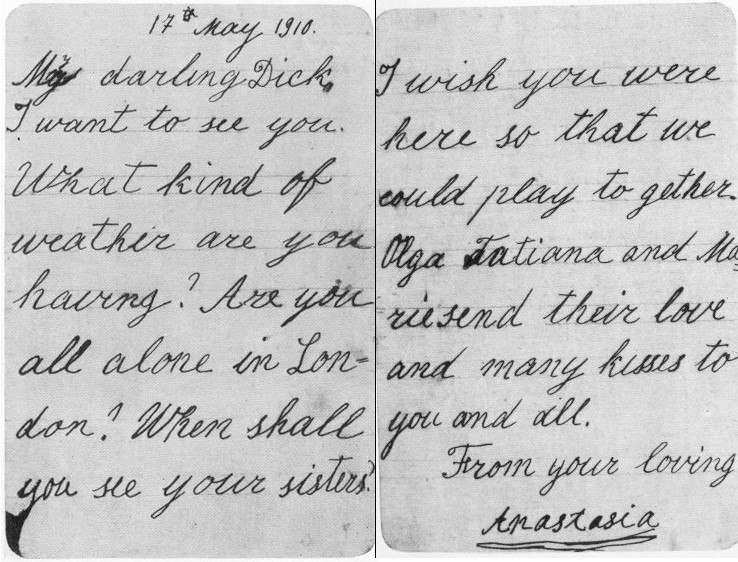 17th May 1910.
My darling Dick,
I want to see you.
What kind of
weather are you
having? Are you
all alone in Lon-
don? When shall
you see your sisters?
I wish you were
here so that we
could play to gether.
Olga Tatiana and Ma
rie send their love
and many kisses to
you and all.
From your loving
Anastasia